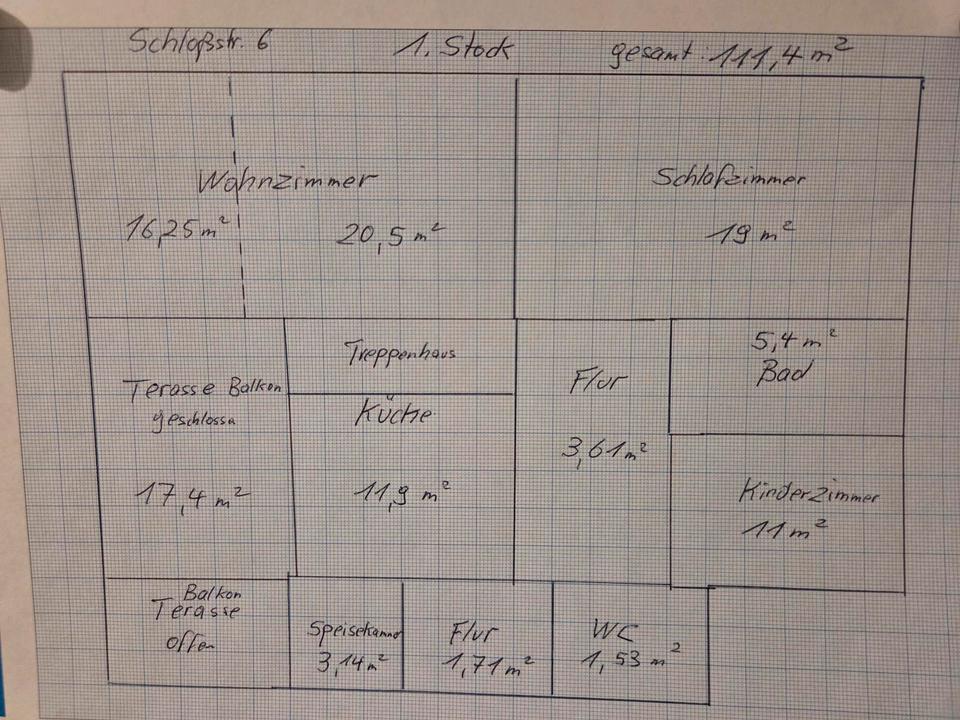 Schloßstr. 6 1. Stock gesamt: 111,4 m²
Wohnzimmer
16,25 m² 20,5 m²
Schlafzimmer
19 m²
Terasse Balkon
geschlossn
17,4 m²
Treppenhaus
Küche
11,9 m²
Flur
3,61 m²
5,4 m²
Bad
Kinderzimmer
11 m²
Balkon
Terasse
offen
Speisekammer
3,14 m²
Flur
1,71 m²
WC
1,53 m²